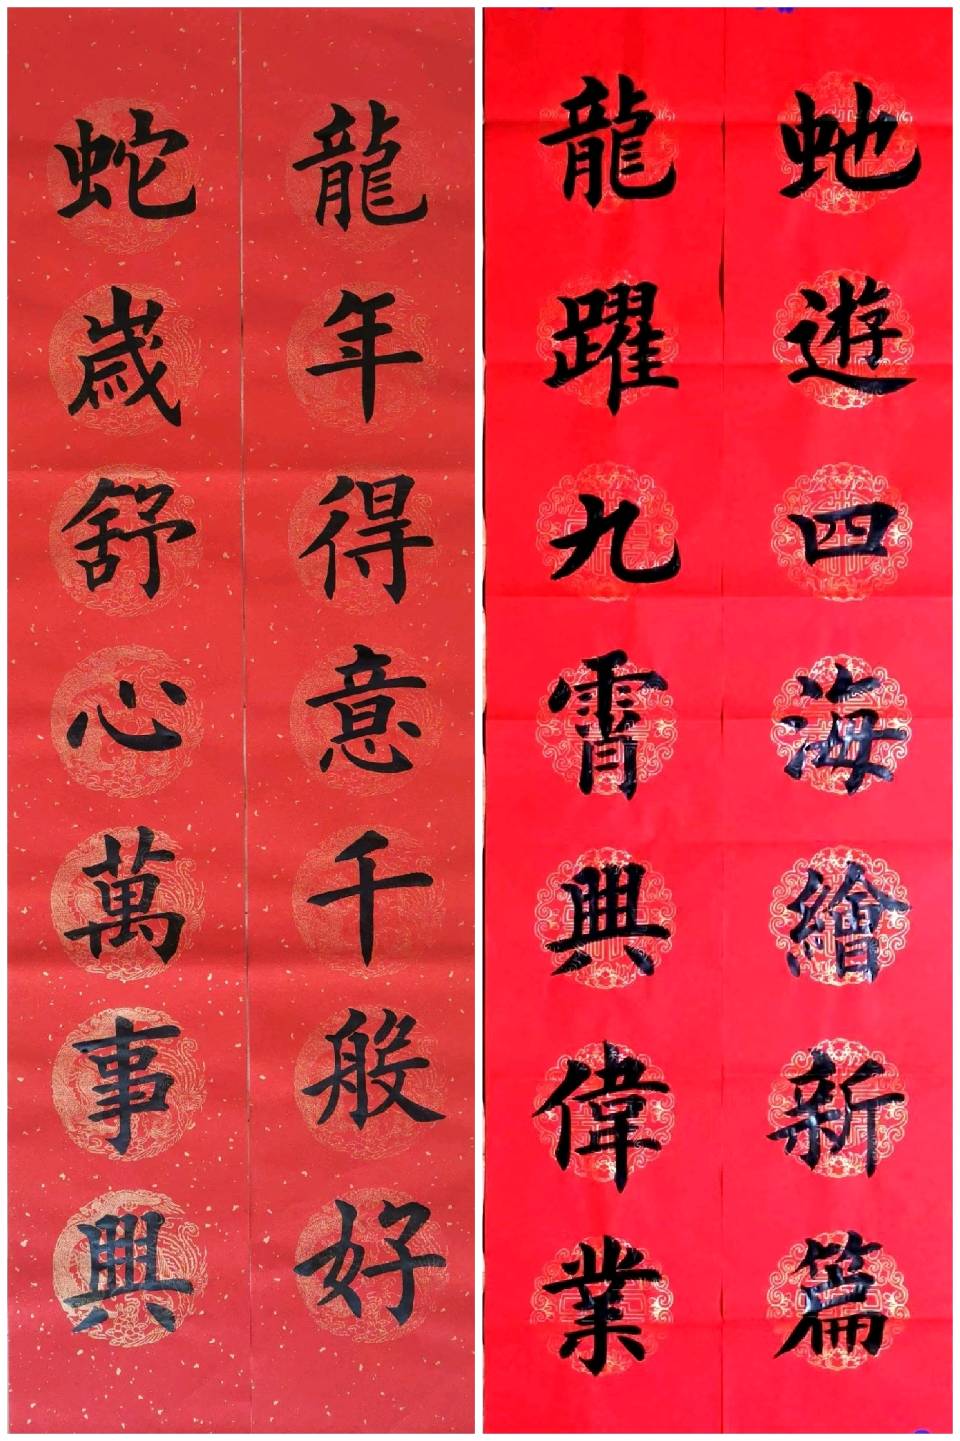 龍年得意千般好
蛇歲舒心萬事興
虵遊四海繪新篇
龍躍九霄興偉業